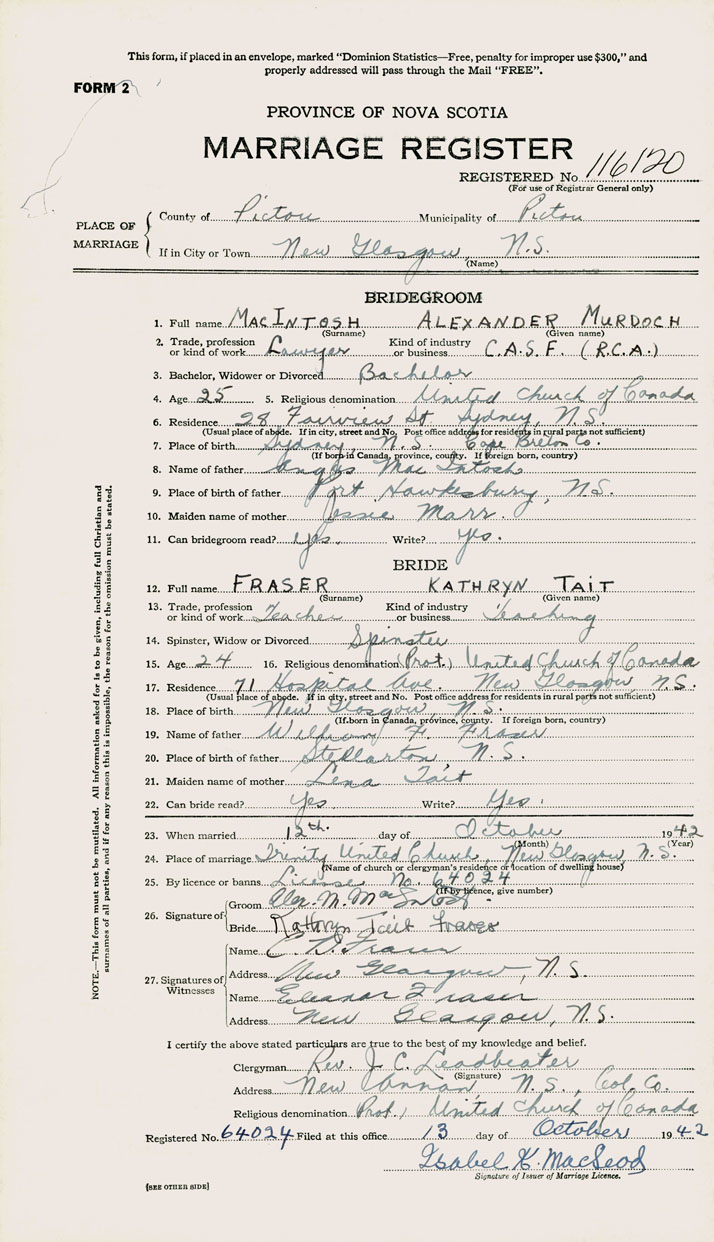 This form, if placed in an envelope, marked "Dominion Statistics—Free, penalty for improper use $300," and
properly addressed will pass through the Mail "FREE".
FORM 2
PROVINCE OF NOVA SCOTIA
MARRIAGE REGISTER
REGISTERED No. 116120
(For use of Registrar General only)
PLACE OF MARRIAGE
County of Pictou Municipality of Pictou
If in City or Town New Glasgow, N.S.
(Name)
BRIDEGROOM
1. Full name MACINTOSH ALEXANDER MURDOCH
(Surname) (Given name)
2. Trade, profession or kind of work Lawyer Kind of industry or business C.A.S.F. (R.C.A.)
3. Bachelor, Widower or Divorced Bachelor
4. Age 25 5. Religious denomination United Church of Canada
6. Residence 28 Fairview St Sydney, N.S.
(Usual place of abode. If in city, street and No. Post office address for residents in rural parts not sufficient)
7. Place of birth Sydney, N.S. Cape Breton Co.
(If born in Canada, province, county. If foreign born, country)
8. Name of father Angus MacIntosh
9. Place of birth of father Port Hawkesbury, N.S.
10. Maiden name of mother Jessie Marr.
11. Can bridegroom read? yes. Write? yes.
BRIDE
12. Full name FRASER KATHRYN TAIT
(Surname) (Given name)
13. Trade, profession or kind of work Teacher Kind of industry or business Teaching
14. Spinster, Widow or Divorced Spinster
15. Age 24 16. Religious denomination (Prot.) United Church of Canada
17. Residence 71 Hospital Ave. New Glasgow, N.S.
(Usual place of abode. If in city, street and No. Post office address for residents in rural parts not sufficient)
18. Place of birth New Glasgow N.S.
(If born in Canada, province, county. If foreign born, country)
19. Name of father William F. Fraser
20. Place of birth of father Stellarton, N.S.
21. Maiden name of mother Lena Tait
22. Can bride read? Yes Write? Yes.
23. When married 12th. day of October 1942
(Month) (Year)
24. Place of marriage Trinity United Church, New Glasgow, N.S.
(Name of church or clergyman's residence or location of dwelling house)
25. By licence or banns License No. 64024
(If by licence, give number)
26. Signature of
Groom Alex. M. MacIntosh
Bride Kathryn Tait Fraser
27. Signatures of Witnesses
Name Fraser
Address New Glasgow, N.S.
Name Eleanor Fraser
Address New Glasgow, N.S.
I certify the above stated particulars are true to the best of my knowledge and belief.
Clergyman Rev. J. C. Leadbeater
(Signature)
Address New Annan N.S., Col. Co.
Religious denomination Prot., United Church of Canada
Registered No. 64024 Filed at this office 13 day of October 1942
Isabel K. MacLeod
Signature of Issuer of Marriage Licence.
(SEE OTHER SIDE)
NOTE.—This form must not be mutilated. All information asked for is to be given, including full Christian and
surnames of all parties, and if for any reason this is impossible, the reason for the omission must be stated.